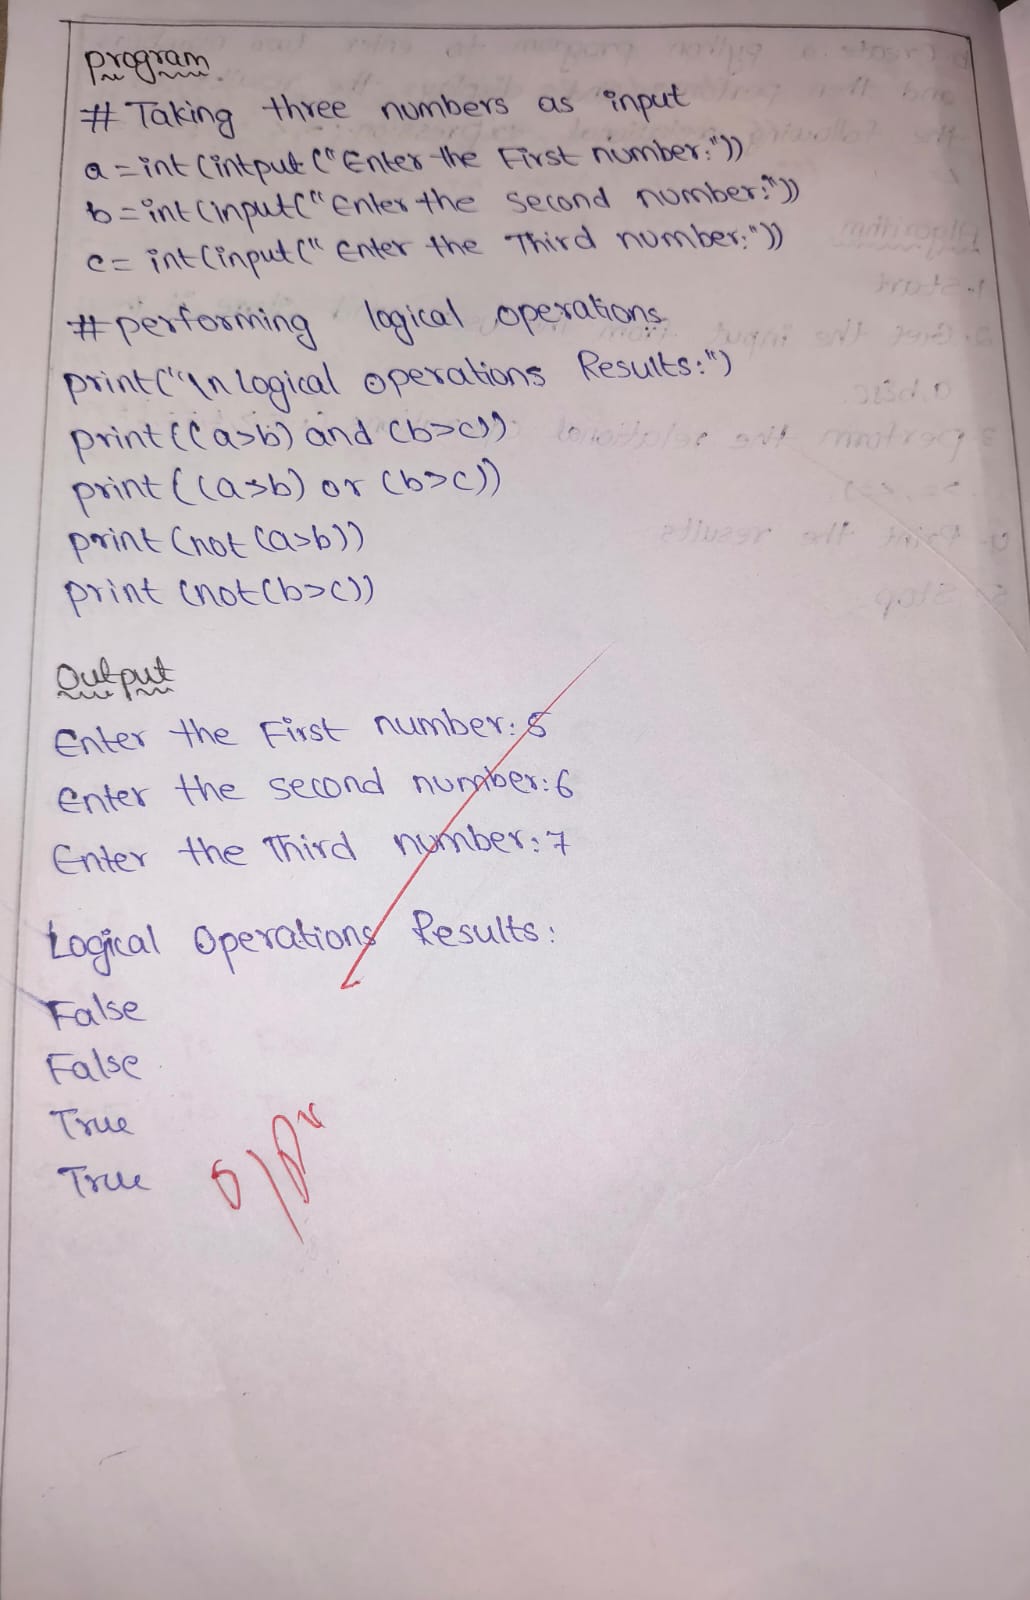 Program
# Taking three numbers as input
a = int(intput("Enter the First number:"))
b = int(input("Enter the Second number:"))
c = int(input("Enter the Third number:"))
# performing logical operations
print("\n Logical operations Results:")
print((a>b) and (b>c))
print((a>b) or (b>c))
print(not(a>b))
print(not(b>c))
Output
Enter the First number: 5
Enter the second number: 6
Enter the Third number: 7
Logical Operations Results:
False
False
True
True